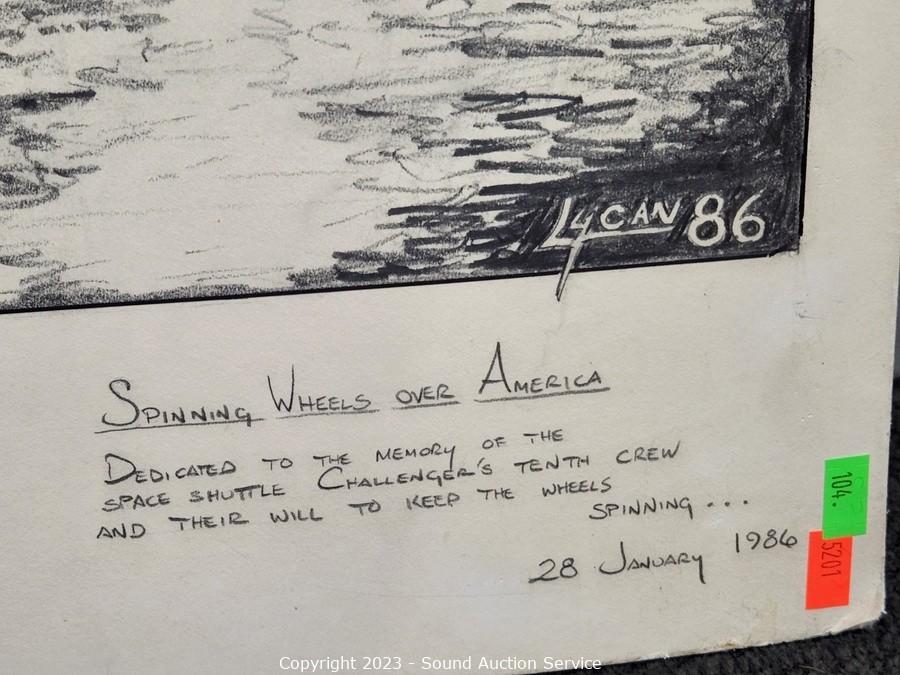 Lycan 86
Spinning Wheels over America
Dedicated to the memory of the
space shuttle Challenger's tenth crew
and their will to keep the wheels
spinning...
28 January 1986
104.
5201
Copyright 2023 - Sound Auction Service